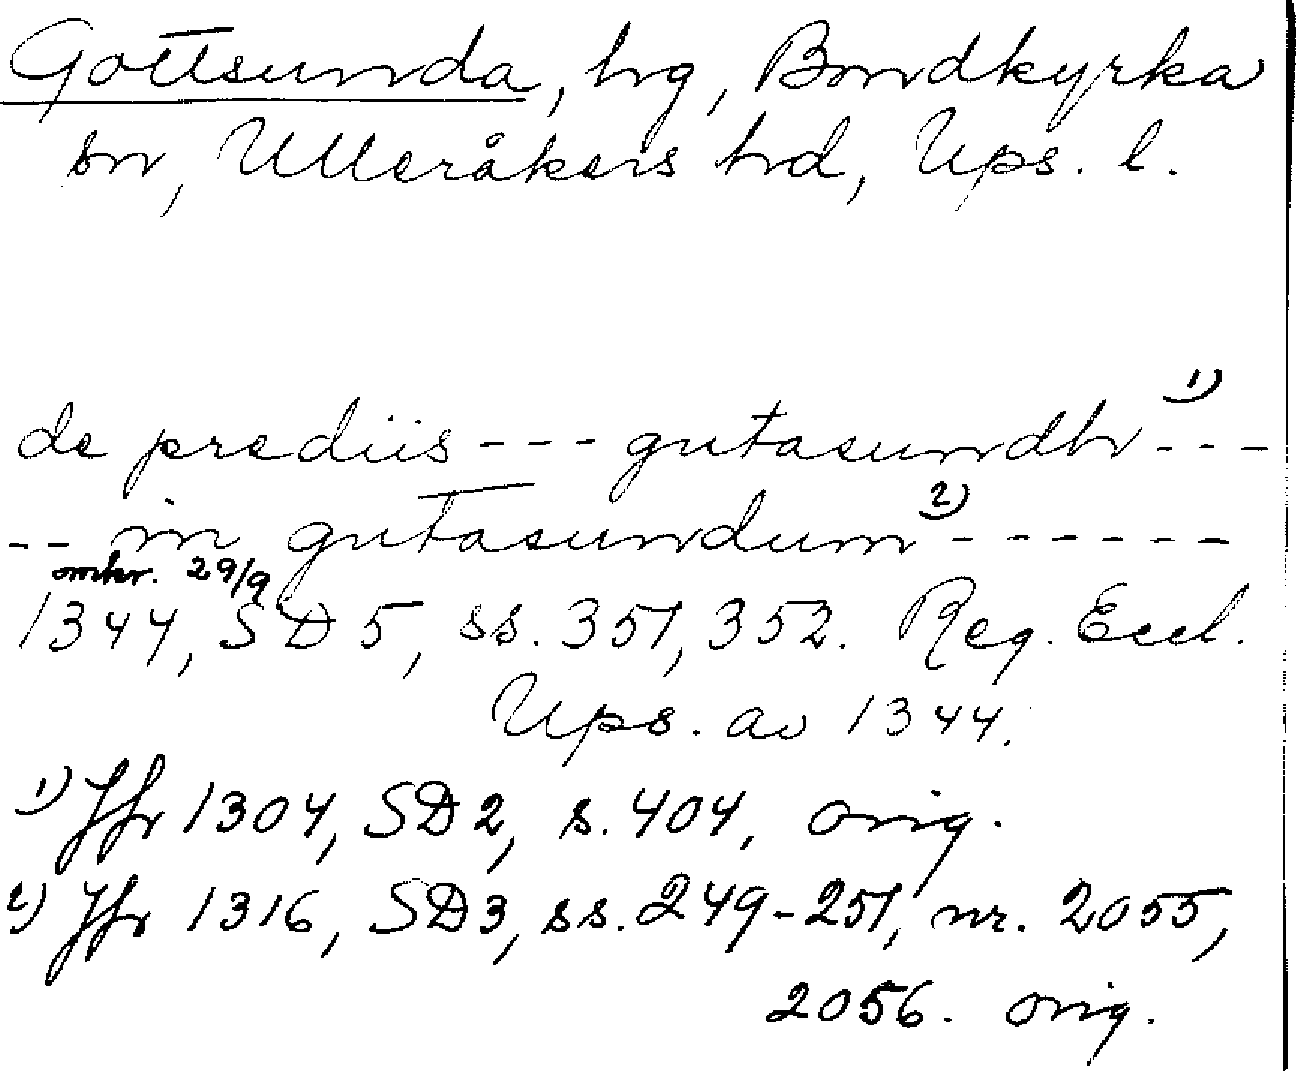 Gottsunda, hg, Bondkyrka
sn, Ulleråkers hd, Ups. l.
de prediis --- gutasundh 1) ---
-- in gutasundum 2) ------
omkr. 29/9
1344, SD 5, ss. 351, 352. Reg. Eccl.
Ups. av 1344.
1) Jfr 1304, SD 2, s. 404, orig.
2) Jfr 1316, SD 3, ss. 249-251, nr. 2055,
2056. orig.